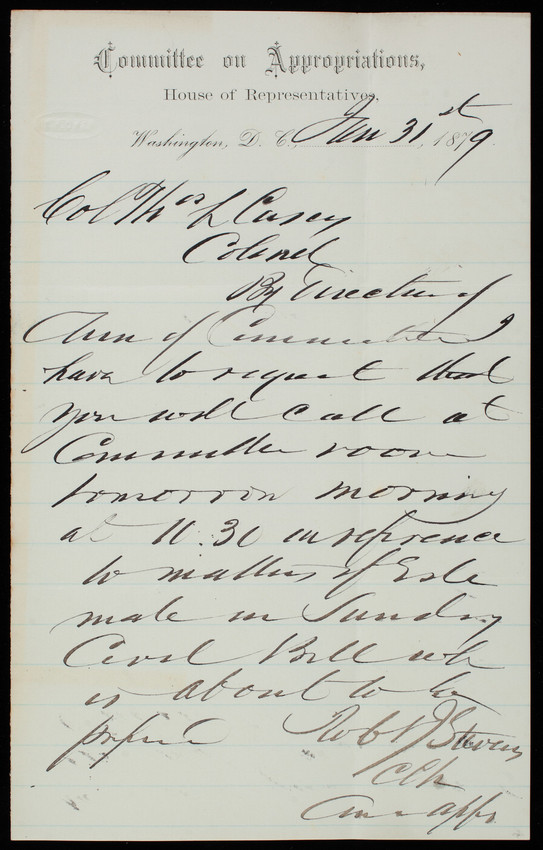 Committee on Appropriations,
House of Representatives,
Washington, D. C., Jan 31st, 1879.
Col Thos L Casey
Colonel
By direction of
Chm of Committee I
have to request that
you will call at
Committee room
tomorrow morning
at 10.30 in reference
to matters of Esti
mate in Sundry
Civil Bill wh
is about to be
Robt J Stevens
Clk
Com Appr